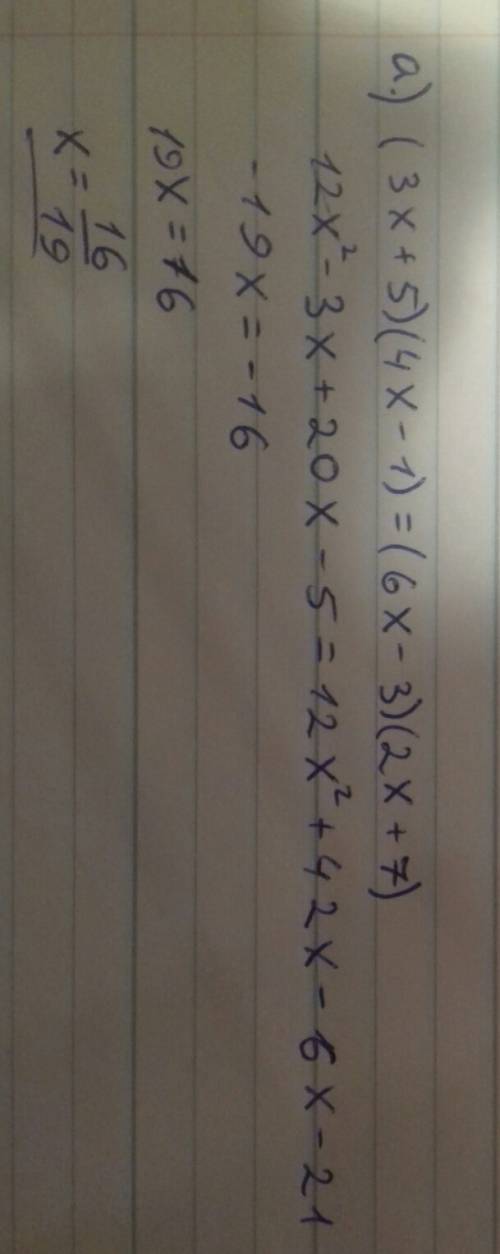 a.) (3x+5)(4x-1)=(6x-3)(2x+7)
12x²-3x+20x-5=12x²+42x-6x-21
-19x=-16
19x=16
x=16/19